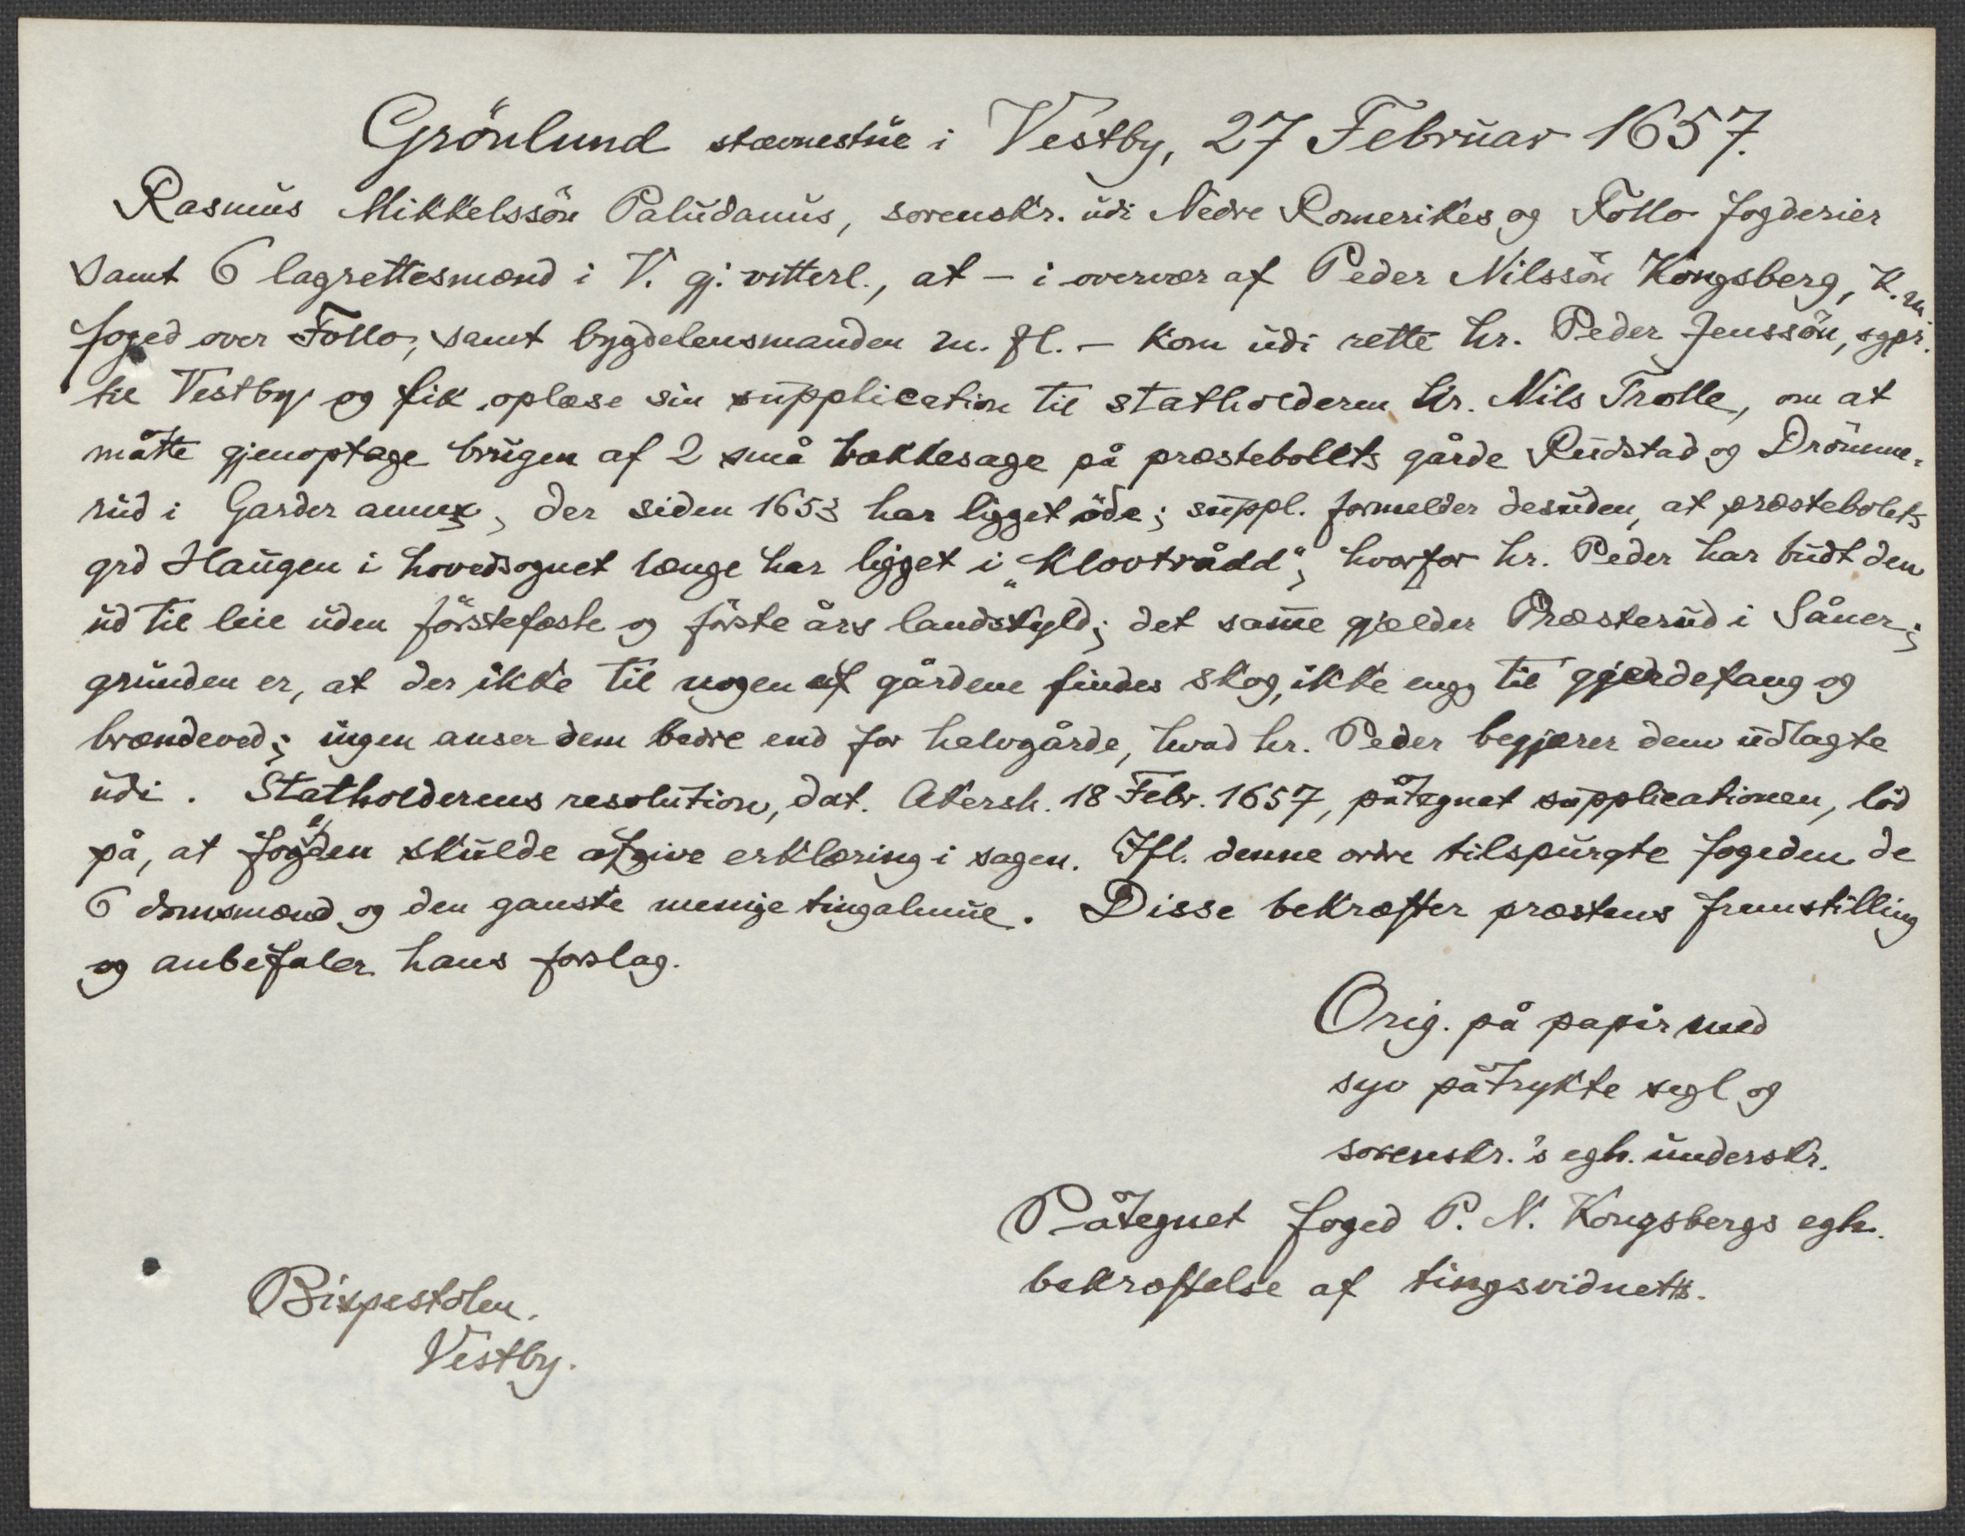 Grönlund stævnestue i Vestby, 27 Februar 1657.
Rasmus Mikkelssön Paludanus, sorenskr. udi Nedre Romerikes og Follo fogderier
samt 6 lagrettesmænd i V. gj. vitterl., at – i overvær af Peder Nilssön Kongsberg, K. m.
foged over Follo, samt bygdelensmanden m. fl. – kom udi rette hr. Peder Jenssön, sgpr.
til Vestby og fik oplæse sin supplication til statholderen hr. Nils Trolle, om at
måtte gjenoptage brugen af 2 små bækkesage på præstebolets gårde Rudstad og Drömme-
rud i Garder annex, der siden 1653 har ligget öde; suppl. formelder desuden, at præstebolets
grd Haugen i hovedsognet længe har ligget i „klovtrådd“, hvorfor hr. Peder har budt den
ud til leie uden förstefæste og förste års landskyld; det samme gjælder Præsterud i Såner;
grunden er, at der ikke til nogen af gårdene findes skog, ikke engg til gjærdefang og
brændeved; ingen anser dem bedre end for halvgårde, hvad hr. Peder begjærer dem udlagte
udi. Statholderens resolution, dat. Akersh. 18 Febr. 1657, påtegnet supplicationen, löd
på, at fogden skulde afgive erklæring i sagen. Ifl. denne ordre tilspurgte fogeden de
6 domsmænd og den ganske menige tingalmue. Disse bekræfter præstens fremstilling
og anbefaler hans forslag.
Orig. på papir med
syv påtrykte segl og
sorenskr.'s egh. underskr.
Påtegnet foged P. N. Kongsbergs egh.
bekræftelse af tingsvidnets.
Bispestolen.
Vestby.